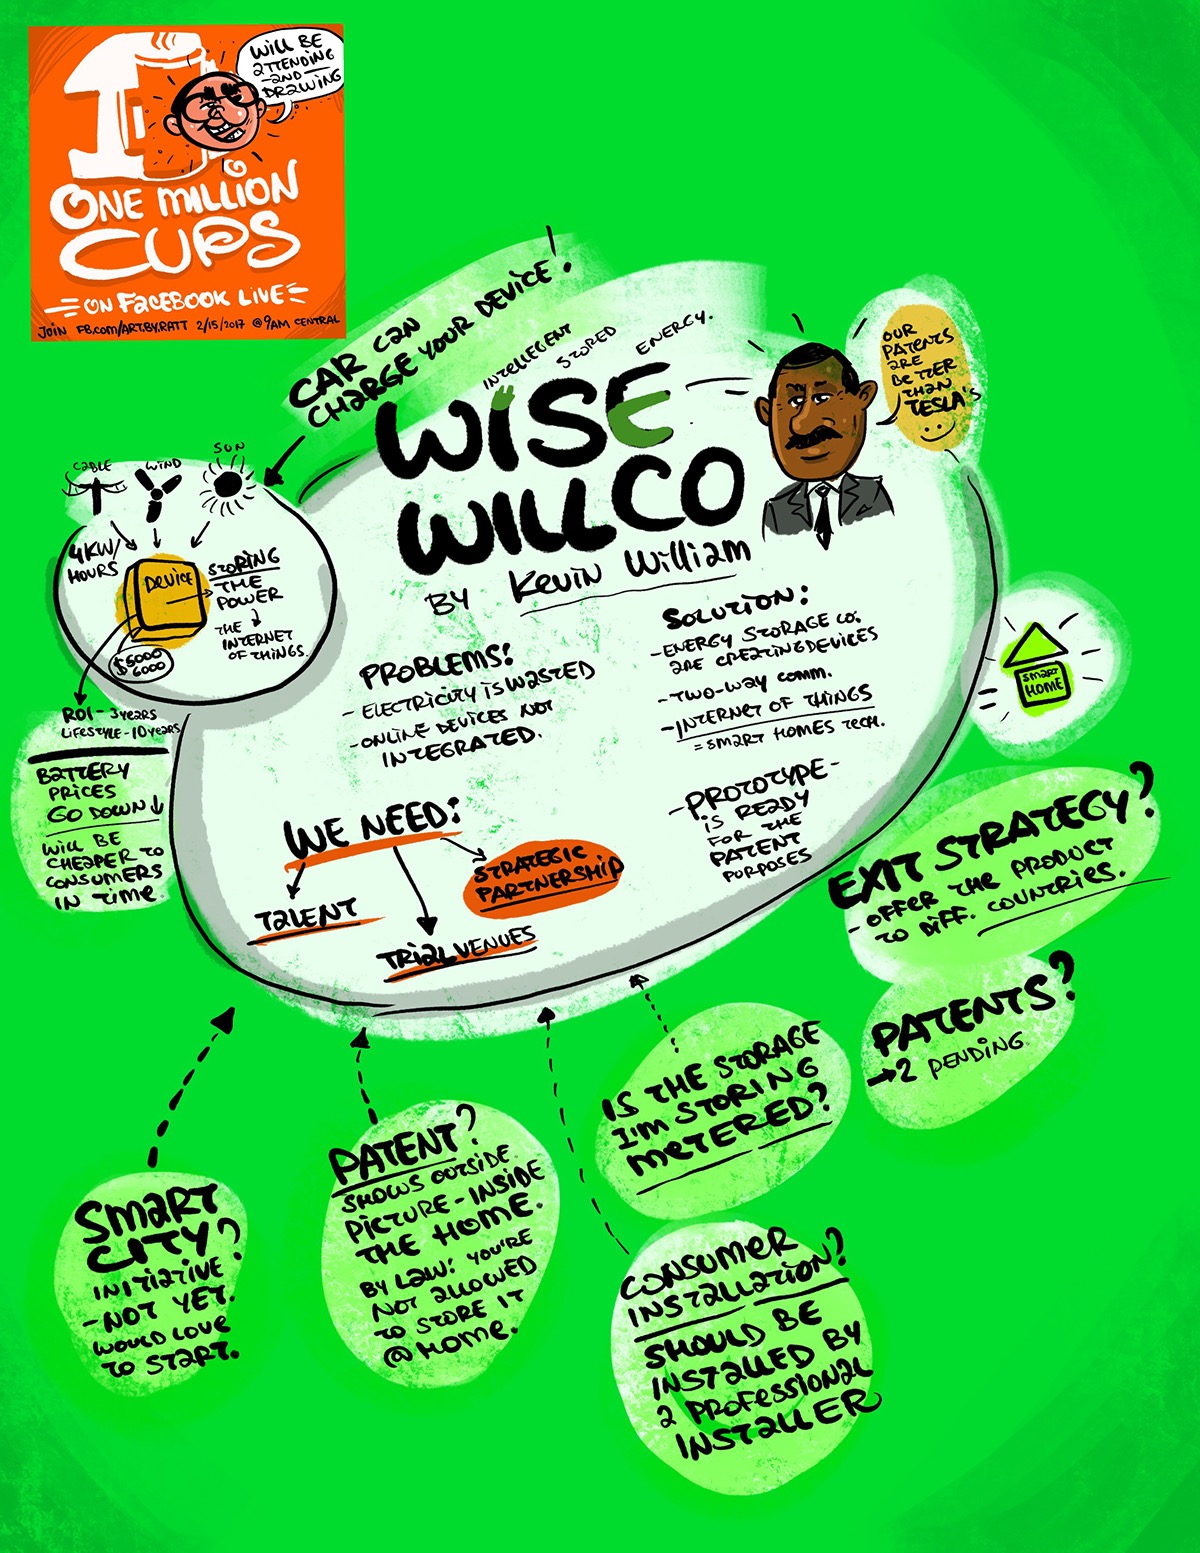 WILL BE
ATTENDING
-AND-
DRAWING
1
ONE MILLION
CUPS
ON FACEBOOK LIVE
JOIN FB.COM/ART.BY.RATT 2/15/2017 @ 9AM CENTRAL
CAR CAN
CHARGE YOUR DEVICE!
INTELLEGENT STORED ENERGY.
WISE
WILLCO
BY KEVIN WILLIAM
OUR
PATENTS
ARE
BETTER
THAN
TESLA'S
CABLE
WIND
SUN
4KW/
HOURS
DEVICE
STORING
THE
POWER
THE
INTERNET
OF THINGS.
$5000
6000
ROI - 3 YEARS
LIFESTYLE - 10 YEARS
BATTERY
PRICES
GO DOWN ↓
WILL BE
CHEAPER TO
CONSUMERS
IN TIME.
PROBLEMS:
- ELECTRICITY IS WASTED
- ONLINE DEVICES NOT
INTEGRATED.
SOLUTION:
- ENERGY STORAGE CO:
ARE CREATING DEVICES
- TWO-WAY COMM.
- INTERNET OF THINGS
= SMART HOMES TECH.
- PROTOTYPE -
IS READY
FOR THE
PATENT
PURPOSES
SMART
HOME
WE NEED:
TALENT
TRIAL VENUES
STRATEGIC
PARTNERSHIP
EXIT STRATEGY?
- OFFER THE PRODUCT
TO DIFF. COUNTRIES.
PATENTS?
→ 2 PENDING
IS THE STORAGE
I'M STORING
METERED?
SMART
CITY?
INITIATIVE
- NOT YET.
WOULD LOVE
TO START.
PATENT?
SHOWS OUTSIDE
PICTURE - INSIDE
THE HOME.
BY LAW: YOU'RE
NOT ALLOWED
TO STORE IT
@ HOME.
CONSUMER
INSTALLATION?
SHOULD BE
INSTALLED BY
A PROFESSIONAL
INSTALLER